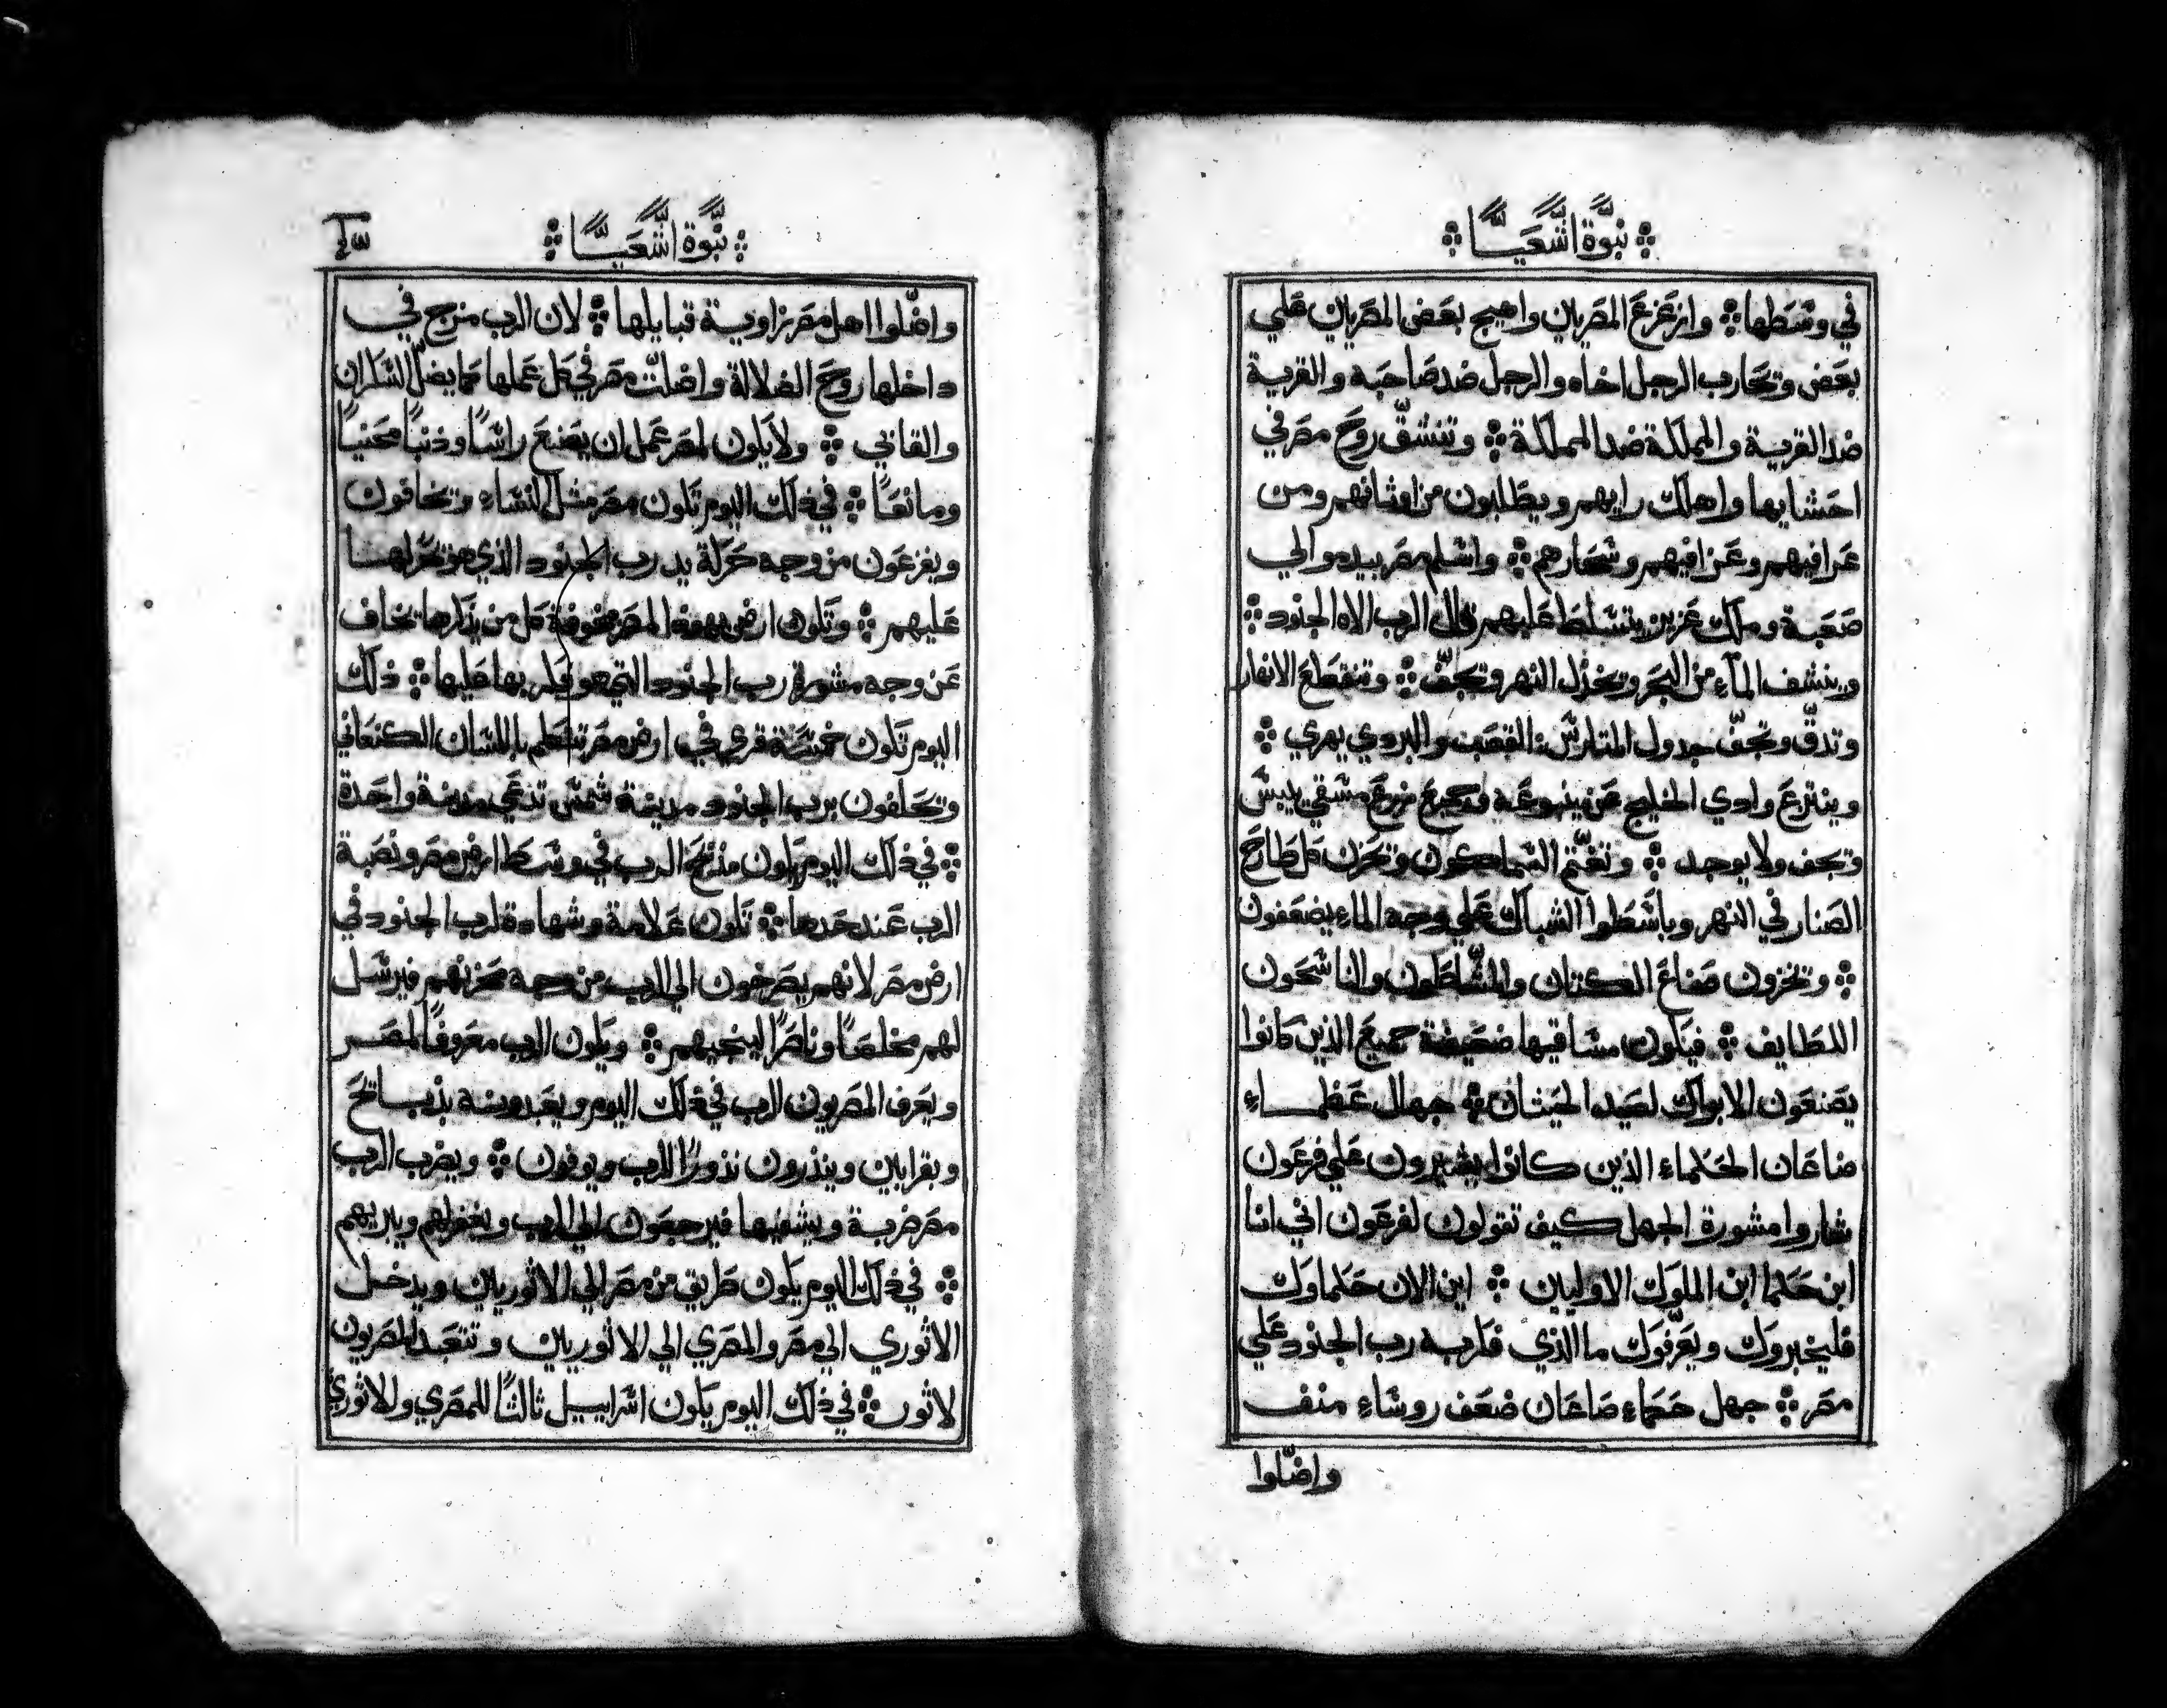 نبوة اشعيا
في وسطها وازعزع المصريين واهيج بعض المصريين علي
بعض وتحارب الرجل اخاه والرجل ضد صاحبه والقرية
ضد القرية والمملكة ضد المملكة وتنشق روح مصر في
احشايها واهلك رايهم ويطلبون من اوثانهم ومن
عرافيهم وعزافيهم وسحارهم واسلم مصر بيد موالي
صعبة وملك عزيز يتسلط عليهم قال الرب الاه الجنود
وينشف المآء من البحر ويخزل النهر وتجف وتنقطع الانهار
وتدق وتجف جدول المتارس القصب والبردي يهري
وينتزع وادي الخليج عن ينبوعه وجميع مزرع مسقي ييبس
وتجف ولا يوجد وتغتم السماكون وتحزن كل طارح
الصنار في النهر وباسطوا الشباك علي وجه الماء يضعفون
وتخزون صناع الكتان والمشاطون والناسجون
اللطايف فيكون مساقيها ضعيفة جميع الذين كانوا
يصنعون الابواك لصيد الحيتان جهال عظماء
صاعان الحكماء الذين كانوا يشيرون علي فرعون
شاروا مشورة الجهل كيف تقولون لفرعون اني انا
ابن حكما ابن الملوك الاوليين اين الان حكماوك
فليخبروك ويعرفوك ما الذي فكر به رب الجنود علي
مصر جهل حكماء صاعان ضعف روساء منف
واضلوا
نبوة اشعيا
واضلوا اهل مصر زاوية قبايلها لان الرب مزج في
داخلها روح الضلالة واضلت مصر في كل عملها كما يضل السكران
والقاني ولا يكون لمصر عمل ان يصنع راسا وذنبا محنيا
ومانعا في ذلك اليوم تكون مصر مثل النساء وتخافون
ويفزعون من وجه حركة يد رب الجنود الذي هو تحركها
عليهم وتكون ارض يهوذا لمصر مخوفة كل من يذكرها تخاف
عن وجه مشورة رب الجنود التي هو فكر بها عليها ذلك
اليوم تكون خمسة قري في ارض مصر تتكلم باللسان الكنعاني
وتحلفون برب الجنود مدينة شمس تدعي مدينة واحدة
في ذلك اليوم يكون مذبح الرب في وسط ارض مصر ونصبة
الرب عند حدها تكون علامة وشهادة لرب الجنود في
ارض مصر لانهم يصرخون الي الرب من وجه محزنهم فيرسل
لهم مخلصا وناصرا لينجيهم ويكون الرب معروفا لمصر
ويعرف المصريون الرب في ذلك اليوم ويعبدونه بذبايح
وبقرابين وينذرون نذورا للرب ويوفون ويضرب الرب
مصر ضربة ويشفيها فيرجعون الي الرب ويغفر لهم ويبريهم
في ذلك اليوم يكون طريق من مصر الي الاثوريين ويدخل
الاثوري الي مصر والمصري الي الاثوريين وتتعبد المصريون
لاثور في ذلك اليوم يكون اسراييل ثالثا للمصري وللاثوري